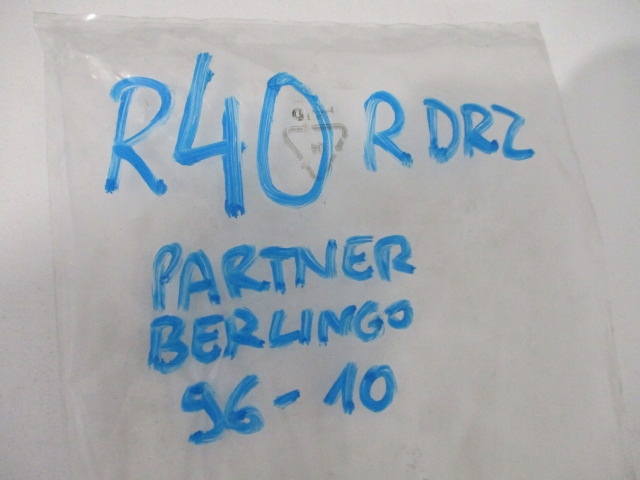 R40 R DRZ
PARTNER
BERLINGO
96-10